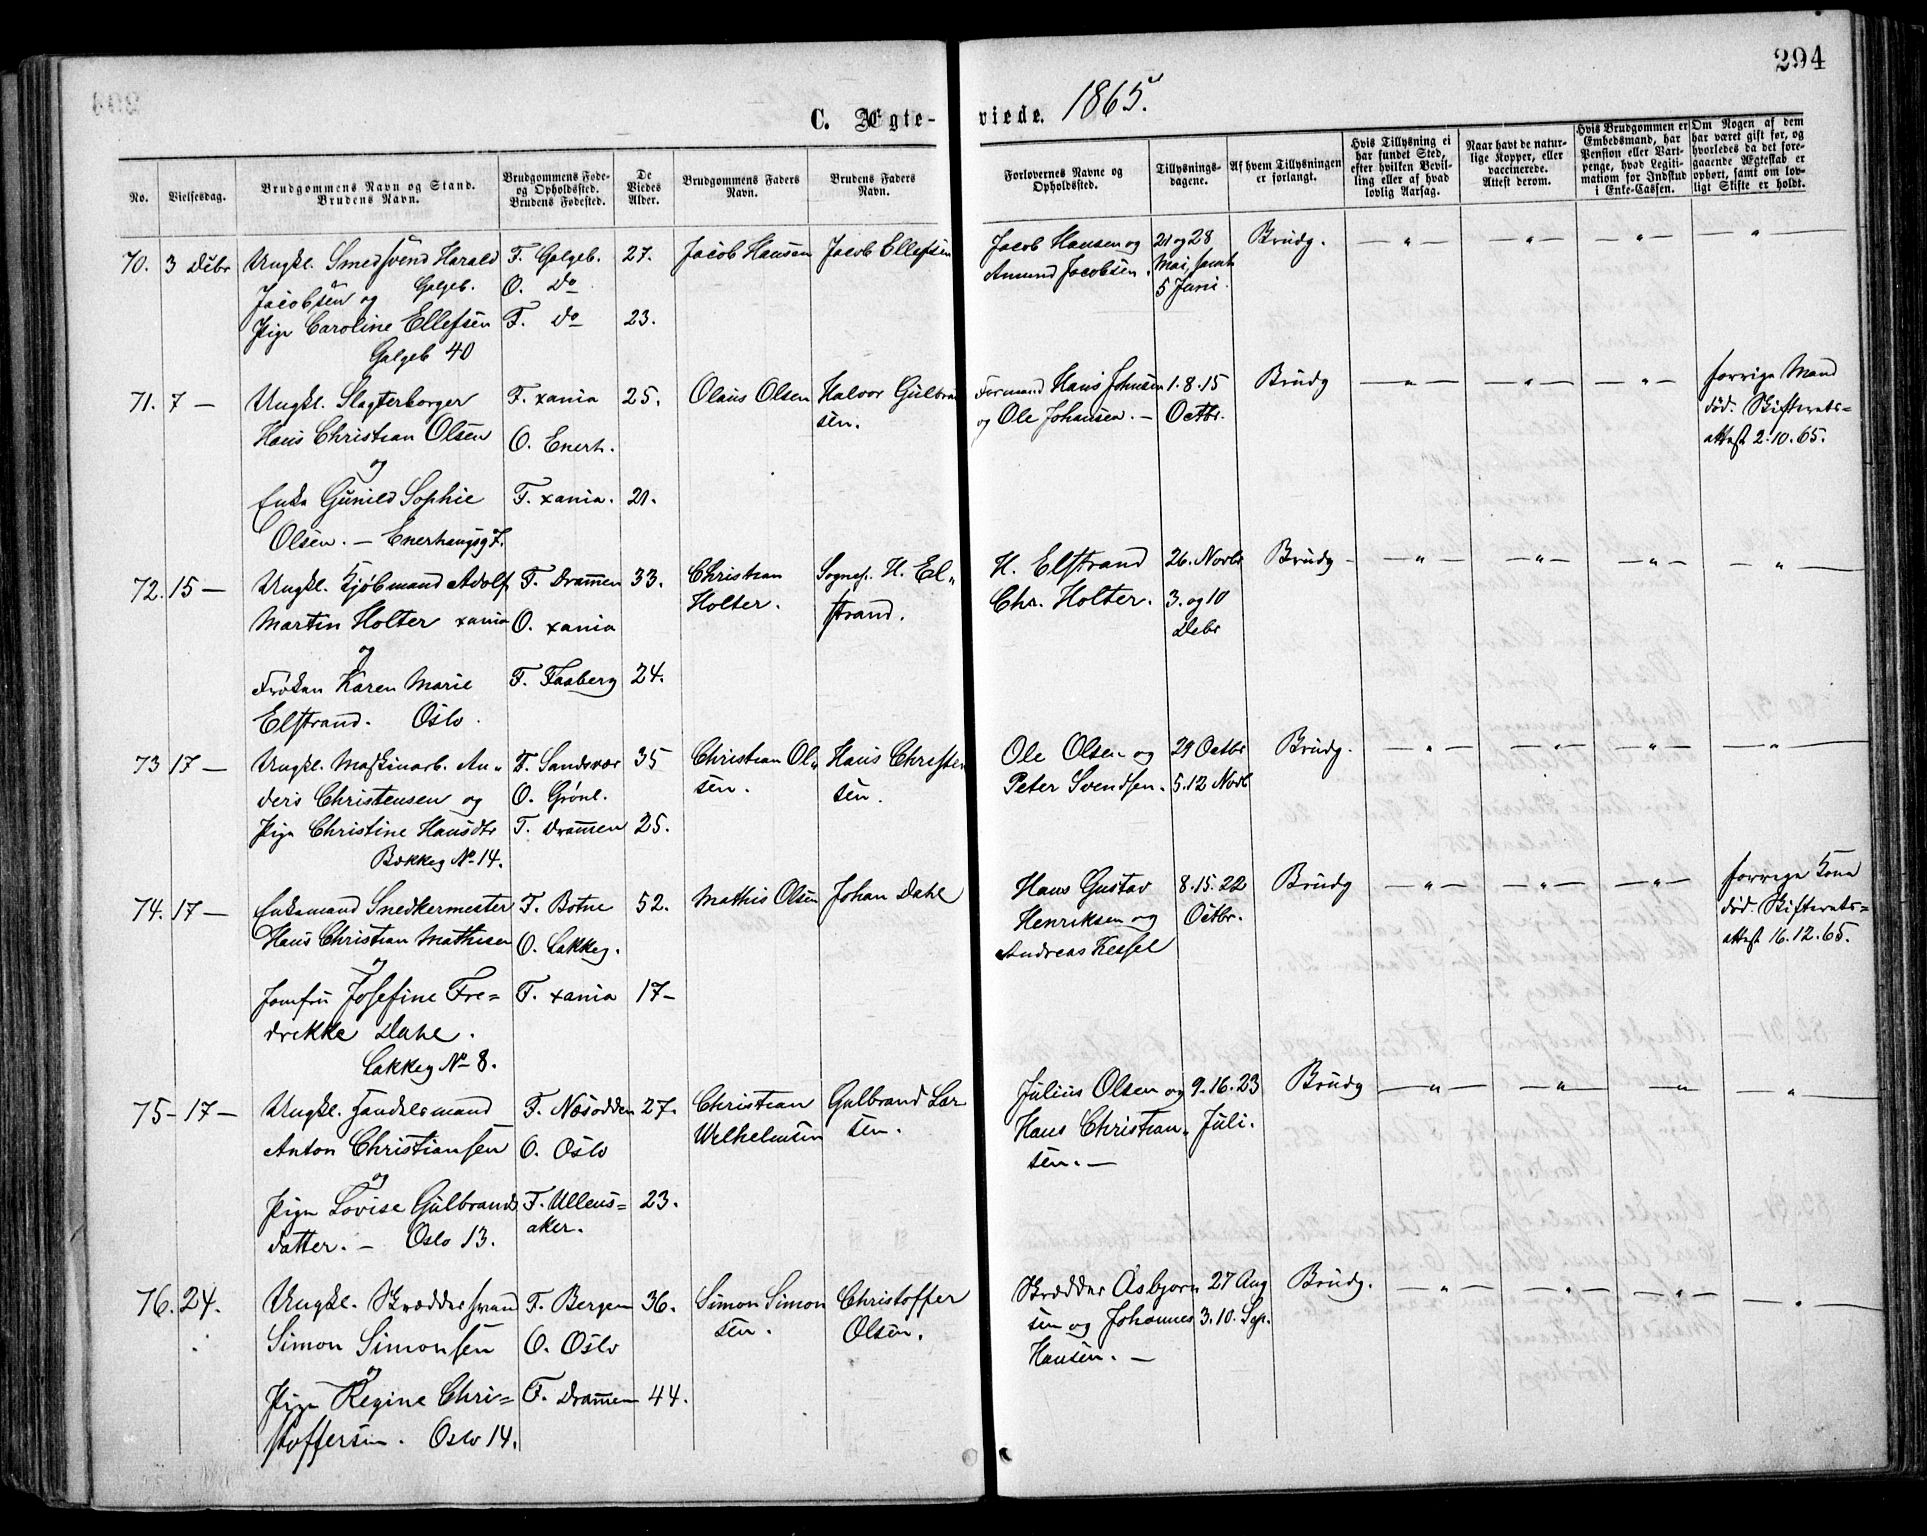 294
C. Ægte-viede. 1865.
No.
Vielsesdag.
Brudgommens Navn og Stand.
Brudens Navn.
Brudgommens Føde-
og Opholdssted.
Brudens Fødested.
De
Viedes
Alder.
Brudgommens Faders
Navn.
Brudens Faders
Navn.
Forlovernes Navne og
Opholdssted.
Tillysnings-
dagene.
Af hvem Tillysningen
er forlangt.
Hvis Tillysning ei
har fundet Sted,
efter hvilken Bevil-
ling eller af hvad
lovlig Aarsag.
Naar havt de natur-
lige Kopper, eller
vaccinerede.
Attest derom.
Hvis Brudgommen er
Embedsmand, har
Pension eller Vart-
penge, hvad Legiti-
mation for Indskud
i Enke-Cassen.
Om Nogen af dem
har været gift før, og
hvorledes da det fore-
gaaende Ægteskab er
ophørt, samt om lov-
ligt Skifte er holdt.
70. 3 Debr Ungkl. Smedsvend Harald F. Galgeb. 27. Jacob Hansen Jacob Ellefsen Jacob Hansen og 21 og 28 Brudg. — " — — " — — " — — " —
Jacobsen og Galgeb. O. Do Amund Jacobsen. Mai, samt
Pige Caroline Ellefsen F. Do 23. 5 Juni.
Galgeb 40
71. 7 — Ungkl. Slagterborger F. xania 25. Olaus Olsen Halvor Gulbrand Formand Hans Johnsen 1. 8. 15 Brudg — " — — " — — " — forrige Mand
Hans Christian Olsen O. Enerh. sen. og Ole Johansen. — Octbr. død. Skifterets=
og attest 2.10.65.
Enke Gunild Sophie F. xania. 21.
Olsen. — Enerhaugsg 7.
72. 15 — Ungkl. Kjøbmand Adolf F. Drammen 33. Christian Sognep. H. El= H. Elstrand 26. Novbr Brudg — " — — " — — " — — " —
Martin Holter xania O. xania Holter. strand. Chr. Holter. 3. og 10
og Debr
Frøken Karen Marie F. Faaberg 24.
Elstrand. Oslo.
73 17 — Ungkl. Maskinarb. An= F. Sandsvær 35 Christian Ol= Hans Christen Ole Olsen og 29 Octbr Brudg. — " — — " — — " — — " —
ders Christensen og O. Grønl. sen. sen. Peter Svendsen. 5. 12 Novb
Pige Christine Hansdtr F. Drammen 25.
Bækkeg No 14.
74. 17 — Enkemand Snedkermester F. Botne 52. Mathis Olsen Johan Dahl Hans Gustav 8. 15. 22 Brudg — " — — " — — " — forrige Kone
Hans Christian Mathisen O. Lakkeg. Henriksen og Octbr. død. Skifterets=
og Andreas Kessel attest 16.12.65.
Jomfru Josefine Fre= F. xania 17 —
drikke Dahl.
Lakkeg No 8.
75 — 17 — Ungkl. Handelsmand F. Næsodden 27. Christian Gulbrand Lar= Julius Olsen og 9. 16. 23 Brudg — " — — " — — " — "
Anton Christiansen O. Oslo Wilhelmsen sen. Hans Christian= Juli.
og sen. —
Pige Lovise Gulbrands F. Ullens= 23.
datter. — Oslo 13. aker.
76. 24. Ungkl. Skræddersvend F. Bergen 36. Simon Simon Christoffer Skrædder Asbjørn 27 Aug Brudg. — " — — " — — " — — " —
Simon Simonsen O. Oslo sen. Olsen. sen og Johannes 3. 10. Sep.
og Hansen. —
Pige Regine Chri= F. Drammen 44.
stoffersen. Oslo 14.